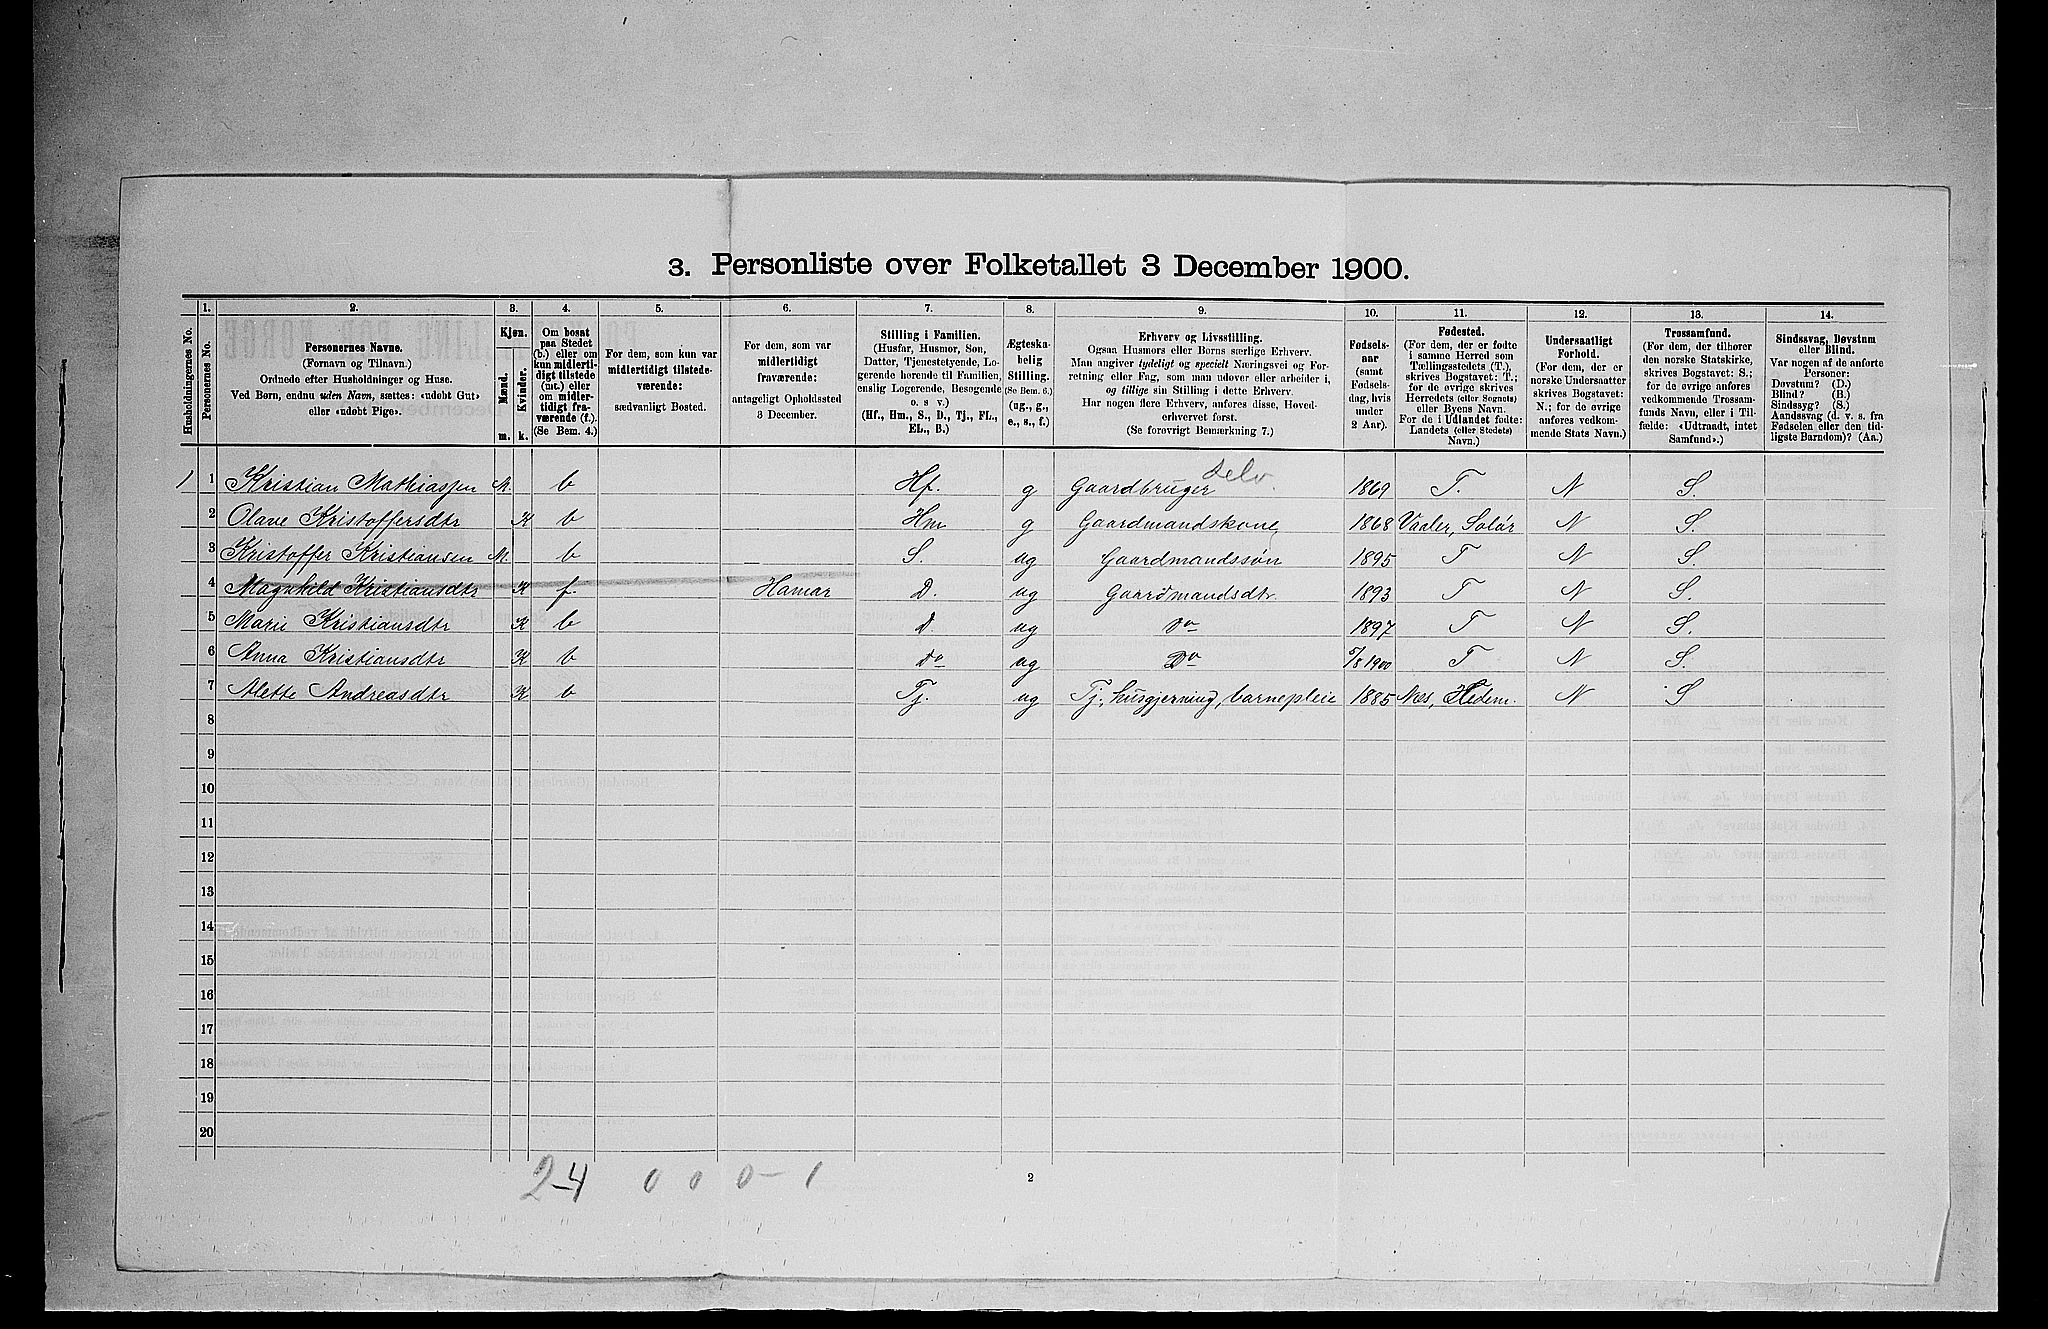 3. Personliste over Folketallet 3 December 1900.
1. 2. 3. 4. 5. 6. 7. 8. 9. 10. 11. 12. 13. 14.
Husholdningernes No.
Personernes No.
Personernes Navne.
(Fornavn og Tilnavn.)
Ordnede efter Husholdninger og Huse.
Ved Børn, endnu uden Navn, sættes: «udøbt Gut»
eller «udøbt Pige».
Kjøn.
Mænd.
Kvinder.
m. k.
Om bosat
paa Stedet
(b.) eller om
kun midlerti-
digt tilstede
(mt.) eller
om midler-
tidigt fra-
værende (f.).
(Se Bem. 4.)
For dem, som kun var
midlertidigt tilstede-
værende:
sædvanligt Bosted.
For dem, som var
midlertidigt
fraværende:
antageligt Opholdssted
3 December.
Stilling i Familien.
(Husfar, Husmor, Søn,
Datter, Tjenestetyende, Lo-
gerende hørende til Familien,
enslig Logerende, Besøgende
o. s v.)
(Hf., Hm., S., D., Tj., FL.,
EL., B.)
Ægteska-
belig
Stilling.
(Se Bem. 6.)
(ug., g.,
e., s., f.)
Erhverv og Livsstilling.
Ogsaa Husmors eller Børns særlige Erhverv.
Man angiver tydeligt og specielt Næringsvei og For-
retning eller Fag, som man udøver eller arbeider i,
og tillige sin Stilling i dette Erhverv.
Har nogen flere Erhverv, anføres disse, Hoved-
erhvervet først.
(Se forøvrigt Bemærkning 7.)
Fødsels-
aar
(samt
Fødsels-
dag, hvis
under
2 Aar).
Fødested.
(For dem, der er fødte
i samme Herred som
Tællingsstedets (T.),
skrives Bogstavet: T.;
for de øvrige skrives
Herredets (eller Sognets)
eller Byens Navn.
For de i Udlandet fødte:
Landets (eller Stedets)
Navn.)
Undersaatligt
Forhold.
(For dem, der er
norske Undersaatter
skrives Bogstavet:
N.; for de øvrige
anføres vedkom-
mende Stats Navn.)
Trossamfund.
(For dem, der tilhører
den norske Statskirke,
skrives Bogstavet: S.;
for de øvrige anføres
vedkommende Trossam-
funds Navn, eller i Til-
fælde: «Udtraadt, intet
Samfund».)
Sindssvag, Døvstum
eller Blind.
Var nogen af de anførte
Personer:
Døvstum? (D.)
Blind? (B.)
Sindssyg? (S.)
Aandssvag (d. v. s. fra
Fødselen eller den tid-
ligste Barndom)? (Aa.)
1) 1 Kristian Mathiassen M. b Hf. g Gaardbruger Selv. 1869 T. N S.
2 Olave Kristoffersdtr K b Hm g Gaardmandskone 1868 Vaaler, Solør N S.
3 Kristoffer Kristiansen M. b S. ug Gaardmandssøn 1895 T N S.
4 Magnhild Kristiansdtr K f. Hamar D. ug Gaardmandsdtr. 1893 T N S.
5 Marie Kristiansdtr K b D. ug Do 1897 T N S.
6 Anna Kristiansdtr K b Do ug Do 5/8 1900 T N S.
7 Alette Andreasdtr K b Tj. ug Tj., husgjerning, barnepleie 1885 Nes, Hedem. N S
8
9
10
11
12
13
14
15
16
17
18
19
20
2-4 0 0 0-1
2